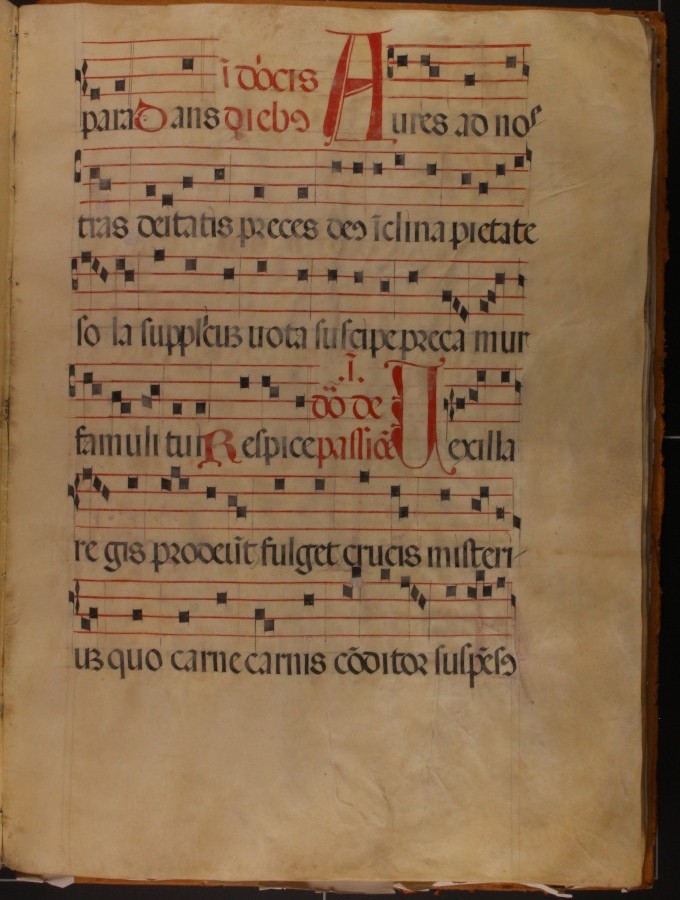 ī dōcis
para Dans dieb9 Aures ad nos
tras deitatis preces de9 īclina pietate
so la supplicuz uota suscipe preca mur
.I.
dō de
famuli tui Respice passiōe Uexilla
re gis prodeūt fulget crucis misteri
uz quo carne carnis cōditor suspēs9